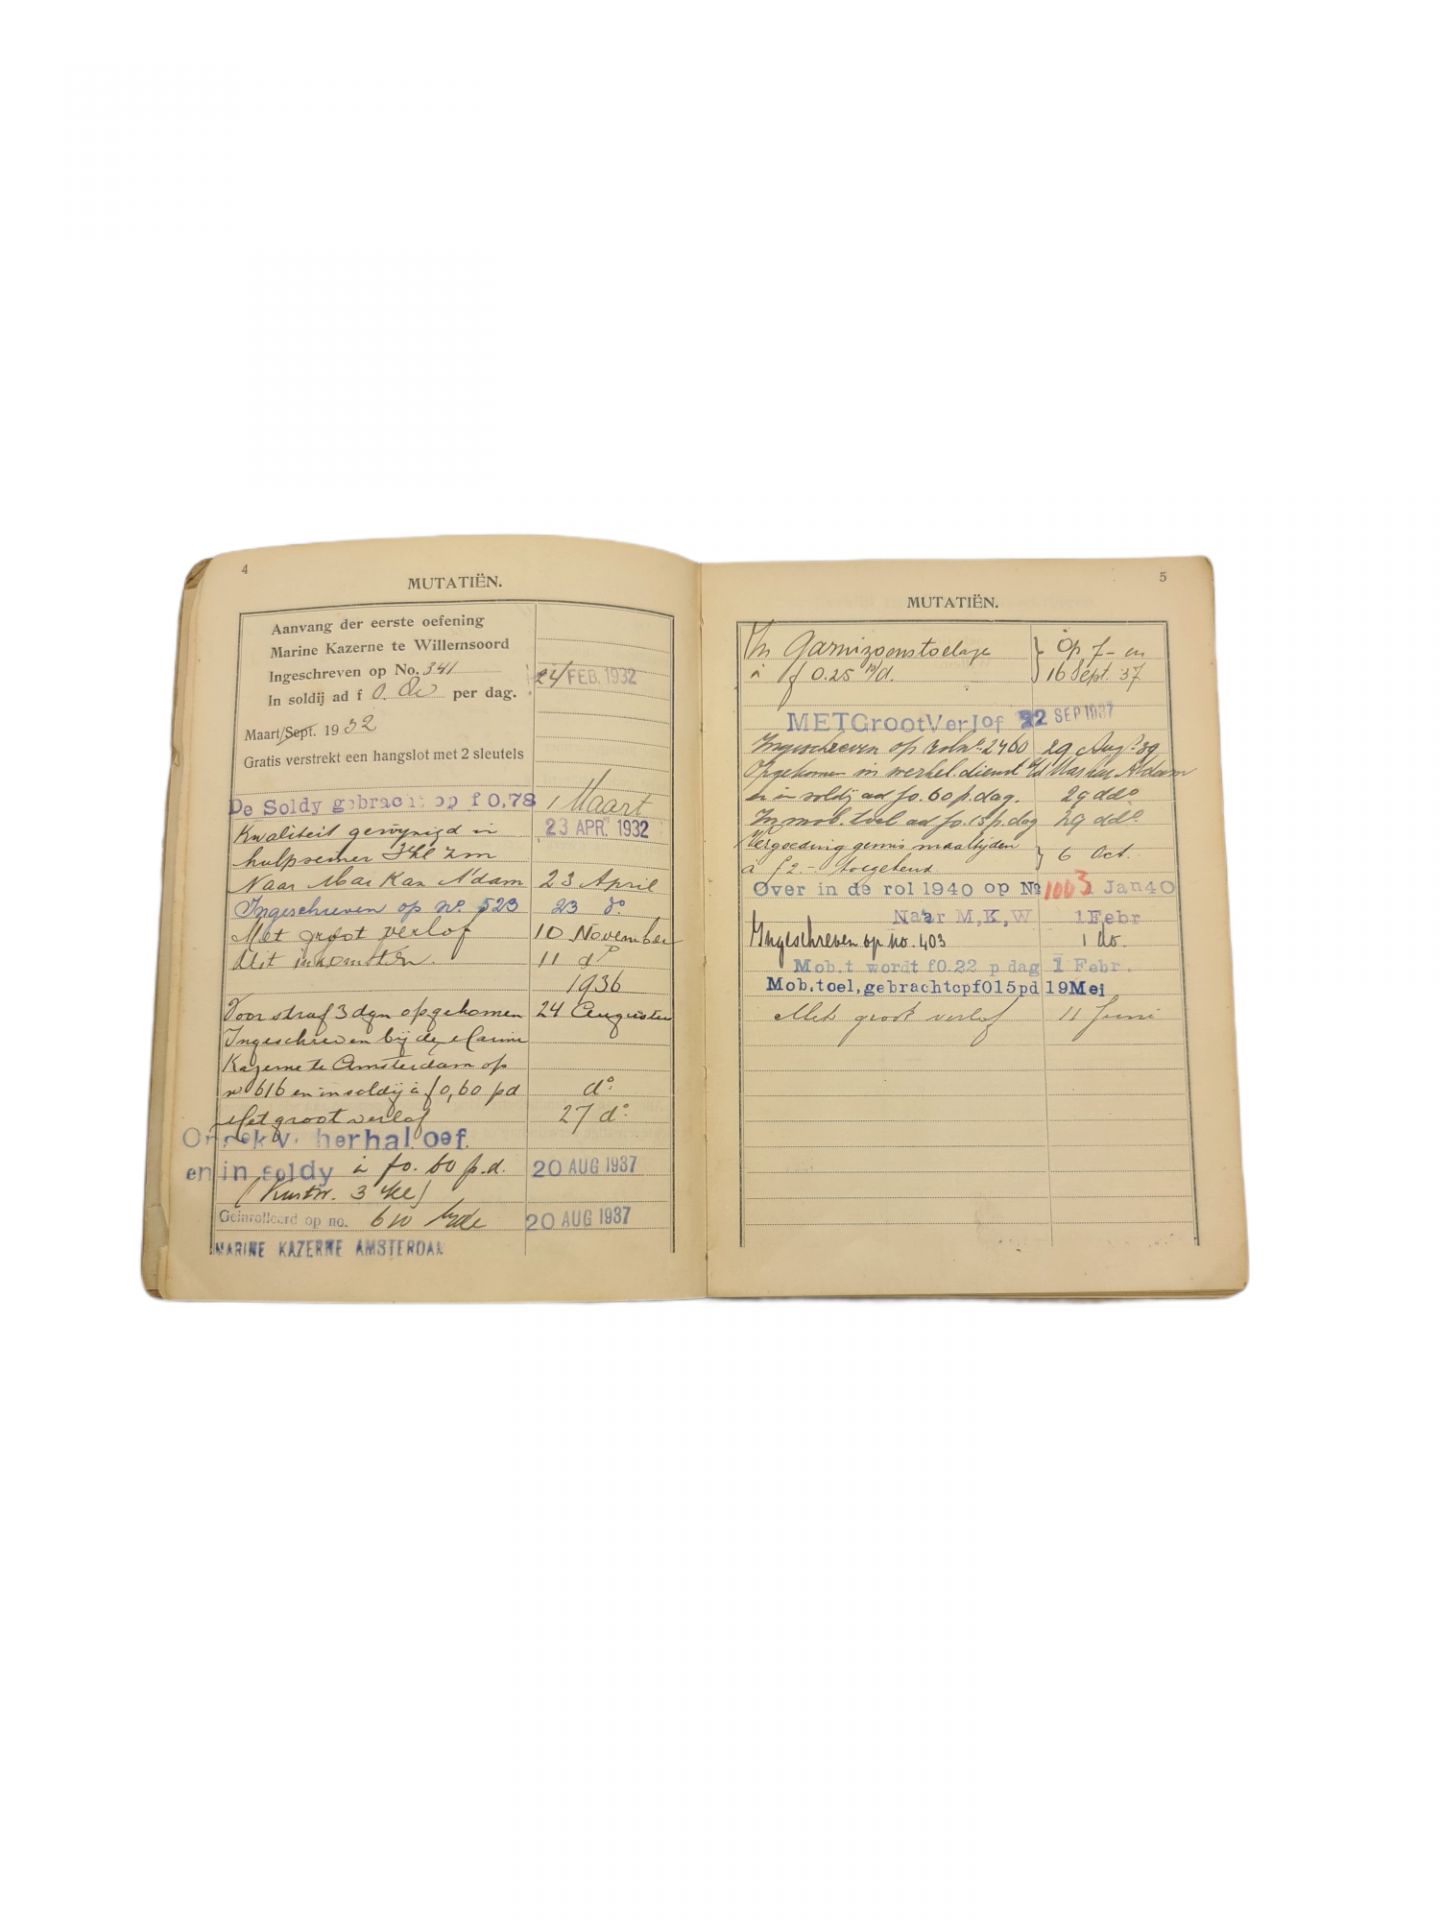 4
MUTATIËN.
Aanvang der eerste oefening
Marine Kazerne te Willemsoord
Ingeschreven op No. 341
In soldij ad f 0. per dag. 24 FEB. 1932
Maart/Sept. 1932
Gratis verstrekt een hangslot met 2 sleutels
De Soldy gebracht op f 0,78 1 Maart
Kwaliteit gewijzigd in 23 APR. 1932
hulpseiner 3 kl zm
Naar Mar Kaz A'dam 23 April
Ingeschreven op no. 523 23 do.
Met groot verlof 10 November
Uit inkomsten. 11 do
1936
Voor straf 3 dgn opgekomen 24 Augustus
Ingeschreven bij de Marine
Kazerne te Amsterdam op
no 616 en in soldij à f 0,60 pd do.
Met groot verlof 27 do.
herhal.oef.
en in soldy à f 0.60 p.d. 20 AUG 1937
Geïnrolleerd op no. 610 20 AUG 1937
MARINE KAZERNE AMSTERDAM
5
MUTATIËN.
In Garnizoenstoelage } Op 7- en
à f 0.25 p/d. } 16 Sept. 37
METGrootVerlof 22 SEP 1937
Ingeschreven op rolno. 2460 29 Aug. 39
Opgekomen in werkel. dienst Mar Kaz A'dam
en in soldij ad f 0.60 p. dag. 29 ddo
In mob. toel ad f 0.15 p. dag 29 ddo.
Vergoeding gemis maaltijden } 6 Oct.
à f 2.- toegekend
Over in de rol 1940 op No 1003 1 Jan 40
Naar M,K,W 1 Febr
Ingeschreven op no. 403 1 do.
Mob.t wordt f0.22 p dag 1 Febr.
Mob.toel,gebrachtopf015pd 19Mei
Met groot verlof 11 Juni